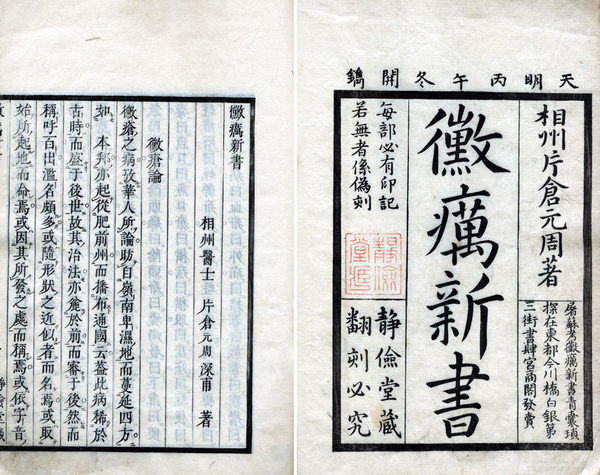 天明丙午冬開鐫
相州片倉元周著
屠蘇考黴癘新書青囊瑣
探在東都今川橋白銀第
三街書肆宮商閣發賣
黴癘新書
每部必有印記
若無者係偽刻
靜儉堂藏
翻刻必究
黴癘新書
相州醫士 片倉元周深甫 著
黴瘡論
黴瘡之病攷華人所論昉自嶺南卑濕地而蔓延四方
如 本邦亦起從肥前州而播布通國云蓋此病稀於
古時而盛于後世故其治法亦麁於前而審于後然而
稱呼百出濫名頗多或隨形狀之近似者而名焉或取
始所起地而命焉或因其所發之處而稱焉或依字音